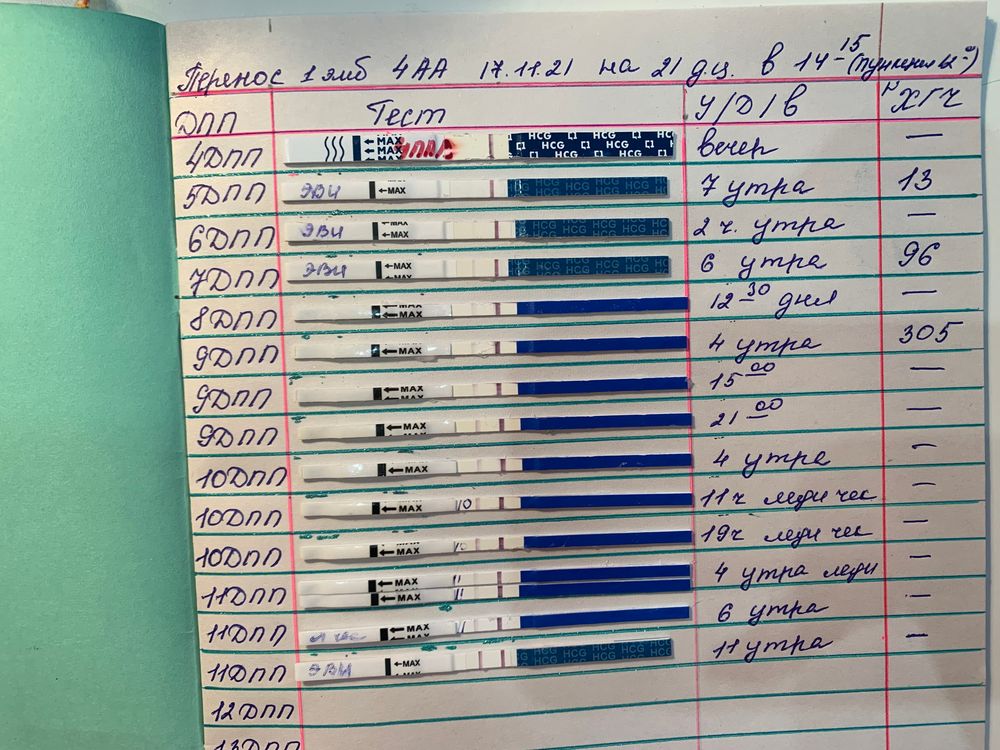 Перенос 1 эмб 4АА 17.11.21 на 21 д.ц. в 14 15
ДПП Тест У/Д/В ХГЧ
4ДПП MAX MAX MAX HCG HCG HCG HCG HCG вечер —
5ДПП ЭВИ MAX HCG HCG HCG HCG 7 утра 13
6ДПП ЭВИ MAX HCG HCG HCG HCG 2 ч. утра —
7ДПП ЭВИ MAX HCG HCG HCG HCG 6 утра 96
8ДПП MAX 12 30 дня —
9ДПП MAX 4 утра 305
9ДПП MAX 15 00 —
9ДПП MAX 21 00 —
10ДПП MAX 4 утра —
10ДПП MAX 10 11ч леди чек —
10ДПП MAX 10 19ч леди чек —
11ДПП MAX 11 4 утра леди —
MAX 11
11ДПП MAX 6 утра
11ДПП ЭВИ MAX HCG HCG HCG HCG 11 утра —
12ДПП
13ДПП